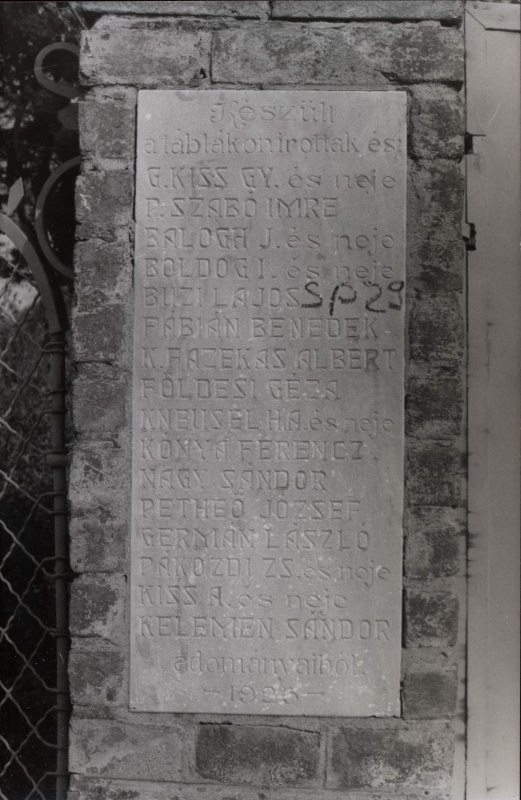 Készült
a táblákon irottak és:
G.KISS GY. és neje
P. SZABÓ IMRE
BALOGH J. és neje
BOLDOG I. és neje
BUZI LAJOS SP29
FÁBIÁN BENEDEK
K. FAZEKAS ALBERT
FÖLDESI GÉZA
KNEUSEL H.A. és neje
KÓNYA FERENCZ
NAGY SÁNDOR
PETHEŐ JÓZSEF
GERMÁN LÁSZLÓ
PÁKOZDI ZS. és neje
KISS A. és neje
KELEMEN SÁNDOR
adományaiból.
- 1925 -